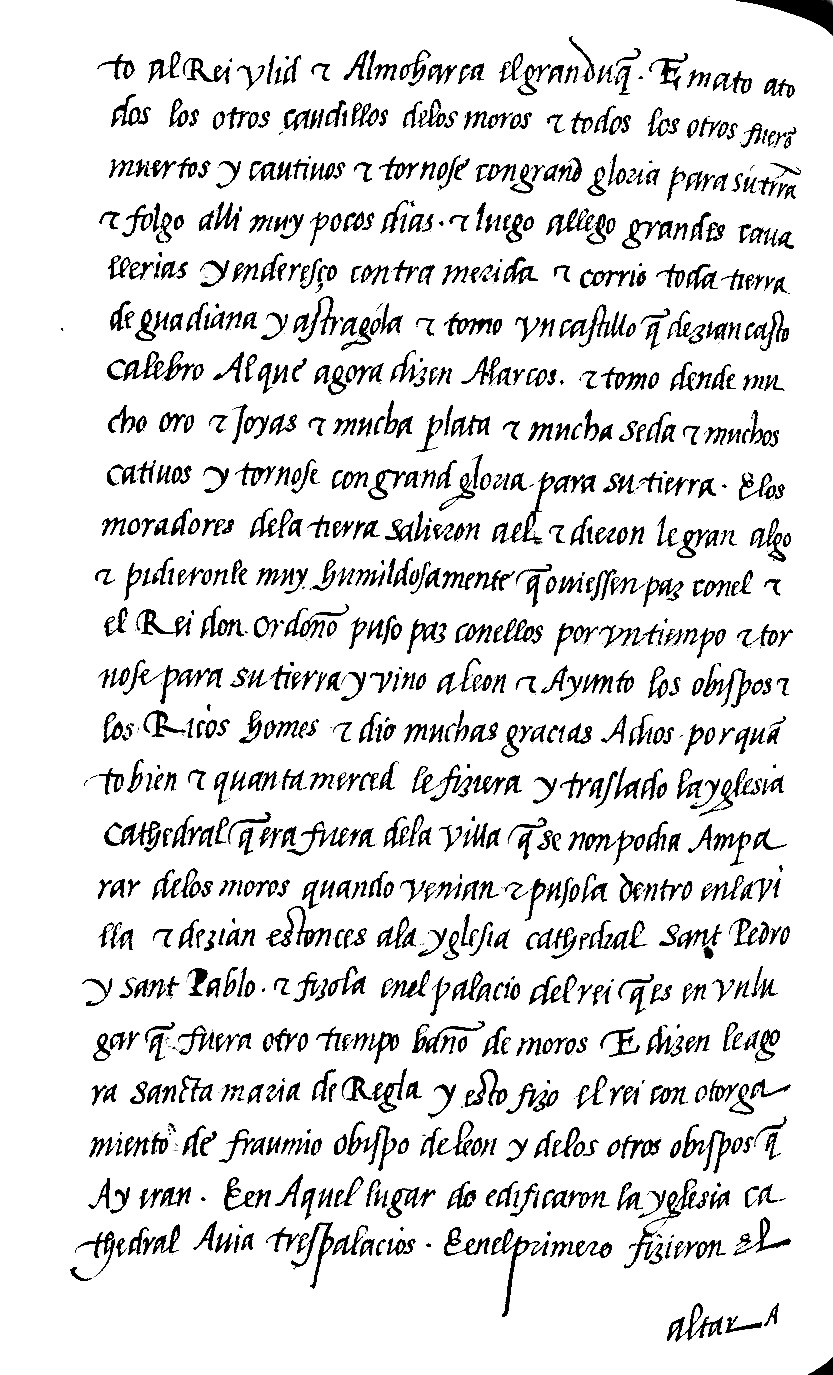 to al Rei ylid τ Almoharca el gran duq̃. E mato ato
dos los otros caudillos delos moros τ todos los otros fuerõ
muertos y cautiuos τ tornose congrand gloria para su trr̃a
τ folgo alli muy pocos dias. τ luego allego grandes caua
llerias y enderesço contra merida τ corrio toda tierra
de guadiana y astragola τ tomo vn castillo q̃ dezian casto
Calebro Al que agora dizen Alarcos. τ tomo dende mu
cho oro τ Joyas τ mucha plata τ mucha seda τ muchos
catiuos y tornose con grand gloria para su tierra. E los
moradores dela tierra salieron a el τ dieron le gran algo
τ pidieronle muy humildosamente q̃ ouiessen paz conel τ
el Rei don Ordoño puso paz conellos por vn tiempo τ tor
nose para su tierra y vino a leon τ Ayunto los obispos τ
los Ricos homes τ dio muchas gracias A dios por quã
to bien τ quanta merced le fiziera y traslado la yglesia
Cathedral q̃ era fuera dela villa q̃ se non podia Ampa
rar delos moros quando venian τ pusola dentro enla vi
lla τ dezian estonces ala yglesia cathedral Sant Pedro
y Sant Pablo. τ fizola enel palacio del rei q̃ es en vn lu
gar q̃ fuera otro tiempo baño de moros E dizen le ago
ra Sancta maria de Regla y esto fizo el rei con otorga
miento de fraumio obispo de leon y delos otros obispos q̃
Ay eran. E en Aquel lugar do edificaron la yglesia ca
thedral Auia tres palacios. E enel primero fizieron el
altar A